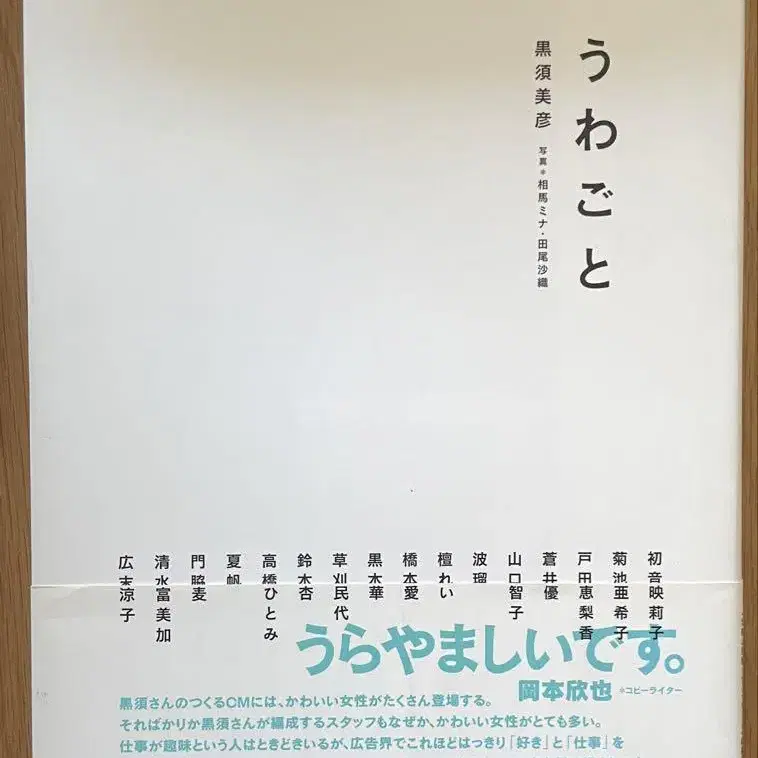 うわごと
黒須美彦
写真＊相馬ミナ・田尾沙織
初音映莉子
菊池亜希子
戸田恵梨香
蒼井優
山口智子
波瑠
檀れい
橋本愛
黒木華
草刈民代
鈴木杏
高橋ひとみ
夏帆
門脇麦
清水富美加
広末涼子
うらやましいです。
岡本欣也 ＊コピーライター
黒須さんのつくるCMには、かわいい女性がたくさん登場する。
そればかりか黒須さんが編成するスタッフもなぜか、かわいい女性がとても多い。
仕事が趣味という人はときどきいるが、広告界でこれほどはっきり「好き」と「仕事」を